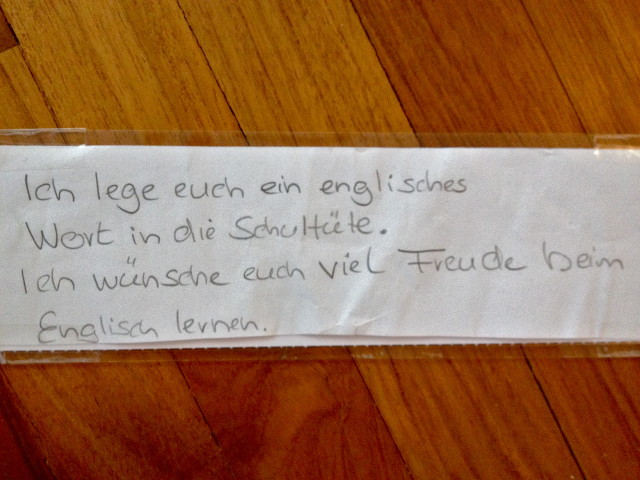 Ich lege euch ein englisches
Wort in die Schultüte.
Ich wünsche euch viel Freude beim
Englisch lernen.